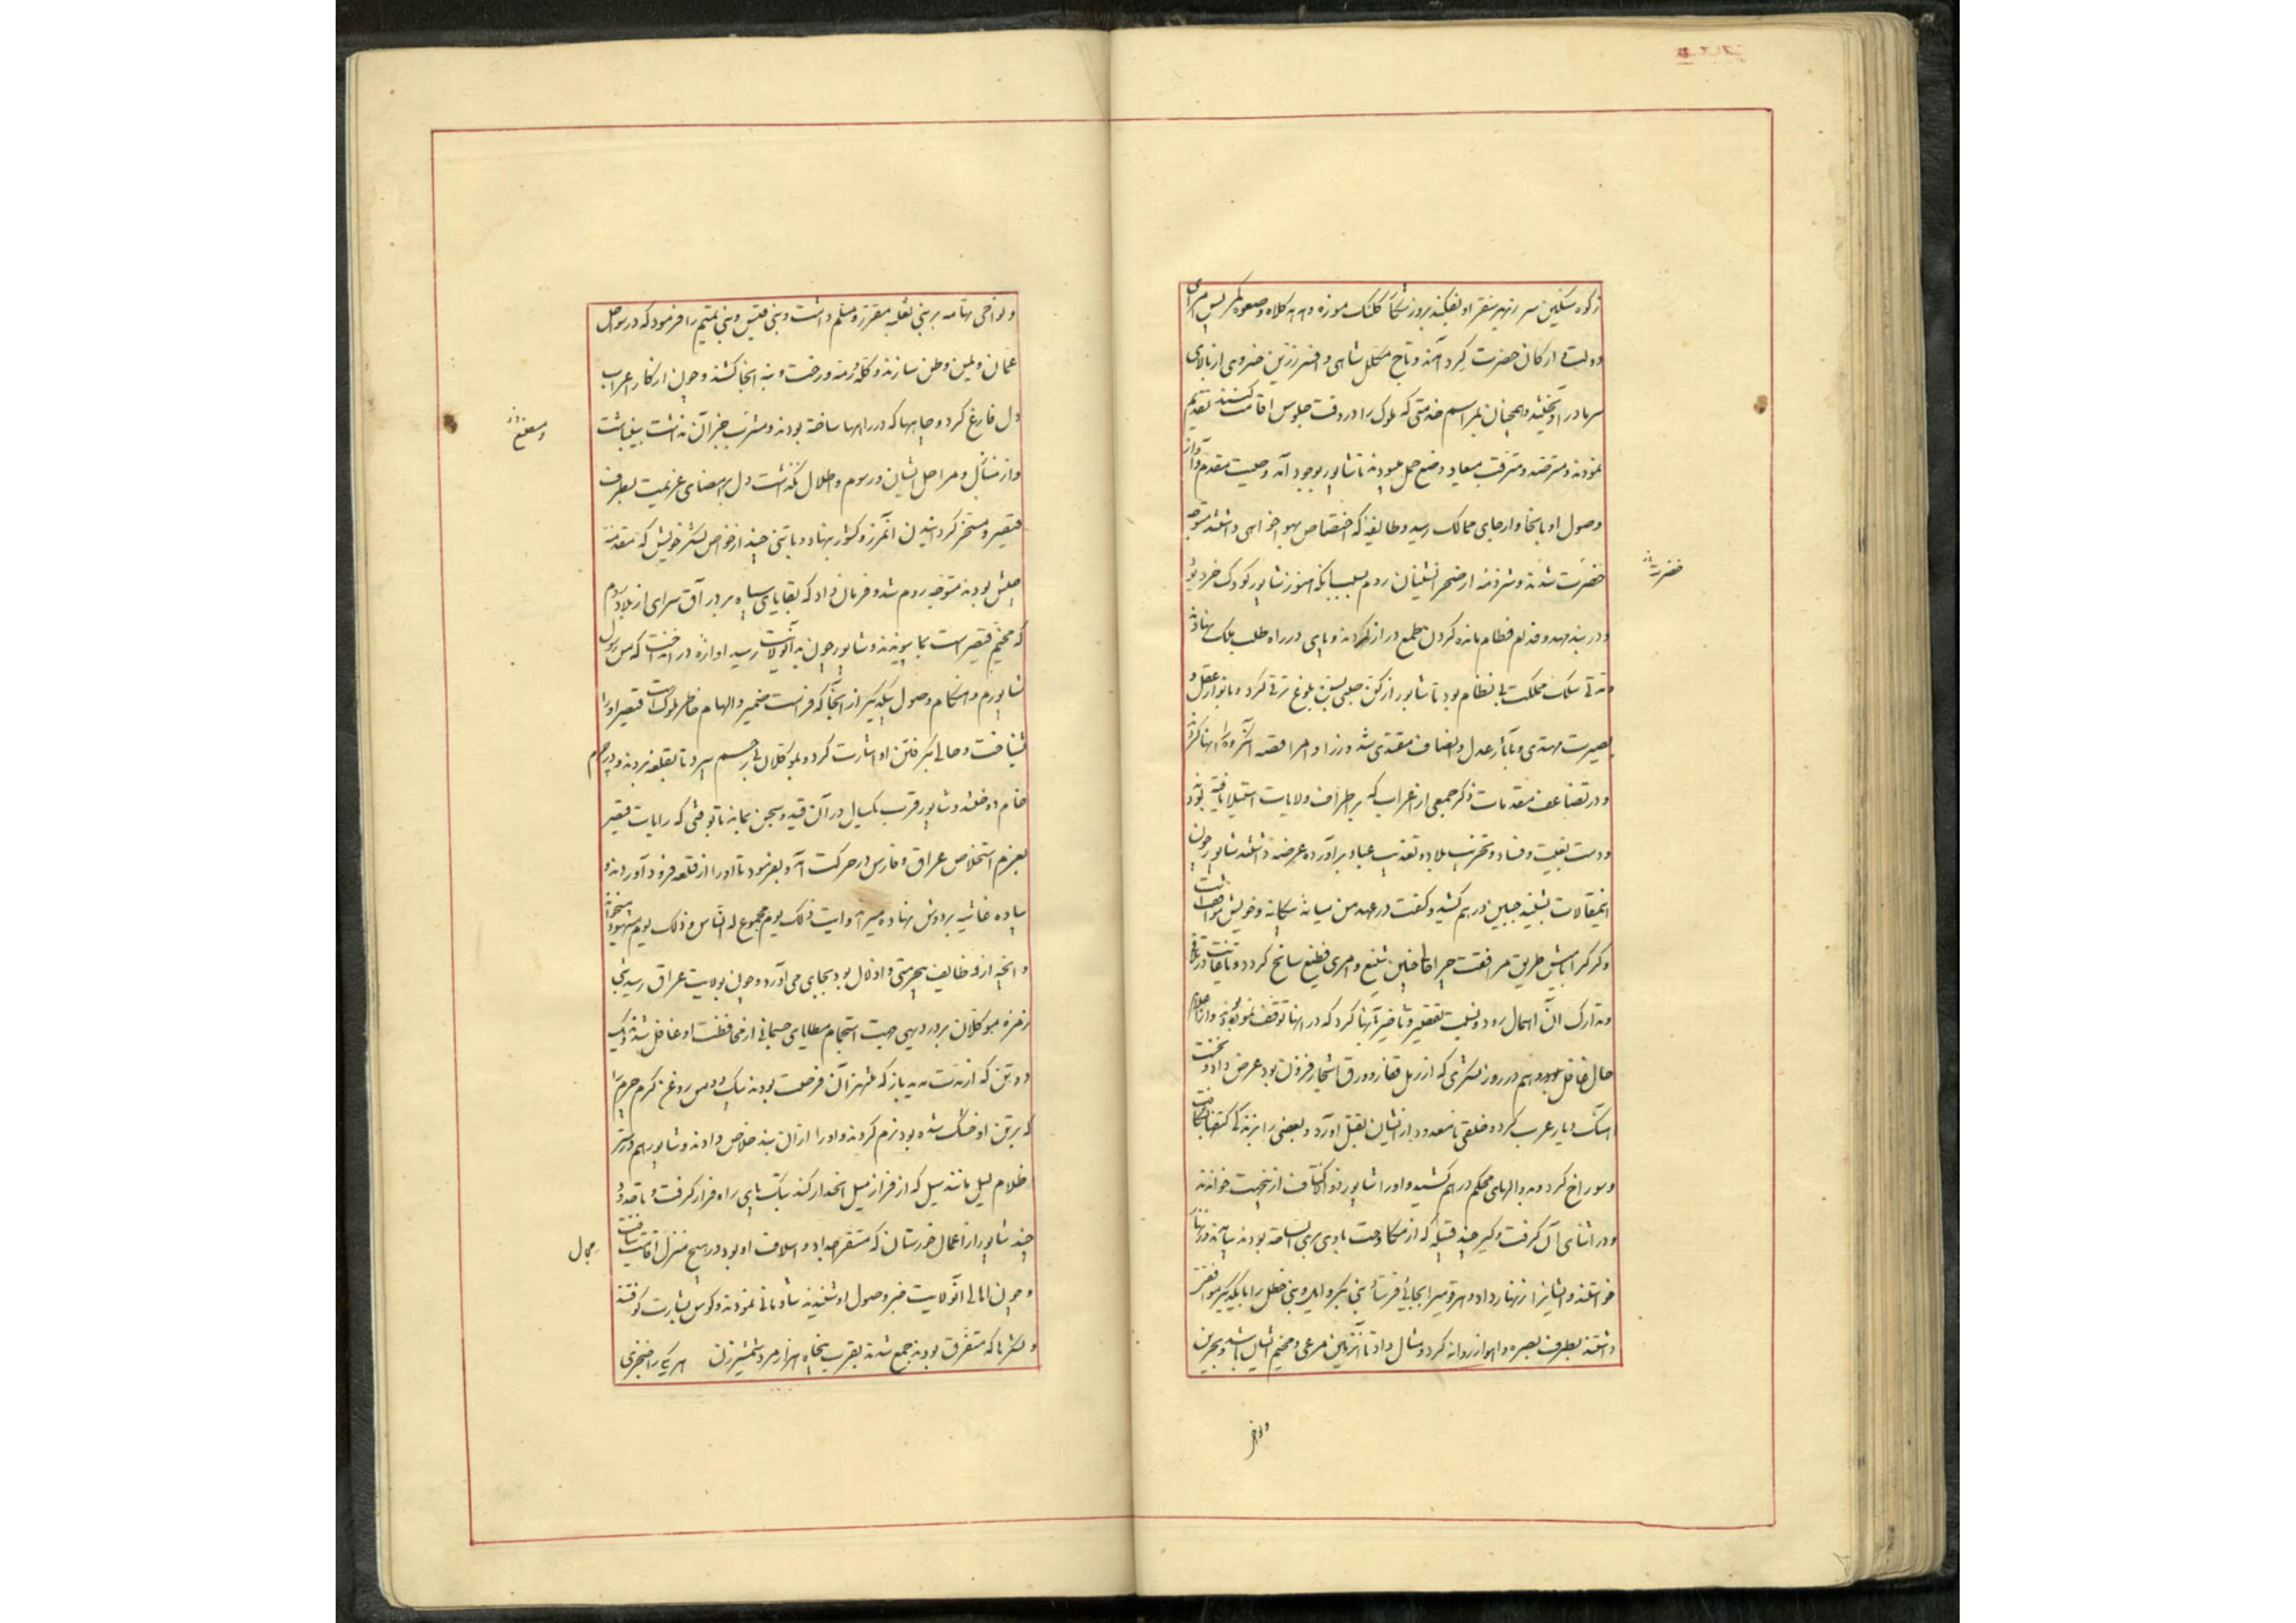 دولت و ارکان حضرت گرد آمدند و تاج مکلل شاهی و افسر زرین خسروی از بالای
سر مادر او و همچنان بمراسم خدمتی که ملوک را در وقت جلوس اقامت کنند تقدیم
نمودند و مترصد و مترقب میعاد وضع حمل میبودند تا شاپور بوجود آمد وصیت مقدم و آواز
وصول او بانحا و ارجای ممالک رسید و طایفه که اختصاص بهواخواهی داشتند متوجه
حضرت شدند و شرذمه از صحرانشینان روم بسبب آنکه هنوز شاپور کودک خرد بود
و در بند مهد و فطام مانده گردن طمع دراز کردند و پای در راه طلب ملک نهادند
مدتی سلک مملکت بی نظام بود تا شاپور از بلوغ ترقی کرد و بانوار عقل و
بصیرت مهتدی و بآثار عدل و انصاف مقتدی شد وزرا و امرا قصه
و در تضاعف مقدمات ذکر جمعی از اعراب که بر اطراف ولایات استیلا یافته بودند
و دست بغلبت و فساد و تخریب بلاد و تعذیب عباد برآورده عرضه داشتند شاپور چون
اینمقالات بشنید جبین درهم کشید و گفت در عهد من میان بیگانه و خویش
و تدارک آن اهمال رود و نسبت تقصیر و تاخیر بآنها کرد که در انهاء توقف نموده بودند
حال هم در روز لشکری که از رمل قفار و ورق اشجار فزون بود عرض داد و نخست
آهنگ دیار عرب کرد و خلقی نامعدود از ایشان بقتل آورد و بعضی را بزندگی کتفها
و سوراخ کردند و والهای محکم درهم کشید و او را شاپور ذوالاکتاف ازینجهت خواندند
و در اثنای آن گرفت و گیر چند قبیله که از بودند بیامدند و زنهار
خواستند و ایشانرا زنهار داد و هر قومی را بجائی فرستاد بنی بکر وایل و بنی حنظله را با یکدیگر
داشتند بطرف بصره و اهواز روانه کرد و مثال داد تا آن زمین مرعی و مخیم ایشان باشد و بحرین
حضرت
ونواحی
ونواحی تهامه بر بنی ثعلبه مقرر و مسلم داشت و بنی قیس و بنی تمیم را فرمود که در سواحل
عمان و یمن وطن سازند و گله و رمه و رخت و بنه آنجا کشند و چون از کار اعراب
دل فارغ کرد و چاهها که در راهها ساخته بودند و مشرب جز آن نداشت بینباشت
و از منازل و مراحل ایشان و رسوم و اطلال نگذاشت دل بر امضای عزیمت بطرف
قیصر و مسخر گردانیدن آن مرز و کشور نهاد و با تنی چند از خواص لشکر خویش که مقدمه
جیش بودند متوجه روم شد و فرمان داد که بقایای سپاه بر در آق سرای از بلاد روم
که مخیم قیصر است بما پیوندند و شاپور چون بآنولایت رسید آوازه در انداخت که من رسول
شاپورم و هنگام وصول بیکدیگر از آنجا که فراست ضمیر و الهام خاطر ملوکست قیصر او را
بشناخت و حالی بگرفتن او اشارت کرد و بموکلان سپرد تا بقلعه بردند و در چرم
خام دوختند و شاپور قرب یکسال در آن قید و سجن بماند تا بوقتی که رایات قیصر
بعزم استخلاص عراق و فارس در حرکت آمد و بفرمود تا او را از قلعه فرود آوردند و
پیاده غاشیه بر دوش نهاده میبرد و آیت ذلک یوم مجموع له الناس و ذلک یوم مشهود میخواند
و آنچه از وظایف بیحرمتی و اذلال بود بجای می آورد و چون بولایت عراق رسید شبی
زمره موکلان بر در دیهی جهت استجمام مطایای جسمانی از محافظت او غافل شدند و یک
دو تن که از مدت مدید باز که منتهز آن فرصت بودند بروغن گرم چرم را
که بر تن او خشک شده بود نرم کردند و او را از آن بند خلاص دادند و شاپور هم در ستر
ظلام لیل مانند سیل که از فراز میل انحدار کند سبک پای راه فرار گرفت و تا حدود
جند شاپور از اعمال خوزستان که مستقر اجداد و اسلاف او بود در هیچ منزل اقامت نیافت
و چون اهالی آنولایت خبر وصول او شنیدند شادمانی نمودند و کوس بشارت کوفتند
و لشکرها که متفرق بودند جمع شدند بقرب پنجاه هزار مرد شمشیرزن هر یکی را خنجری
و مصنع
مجال